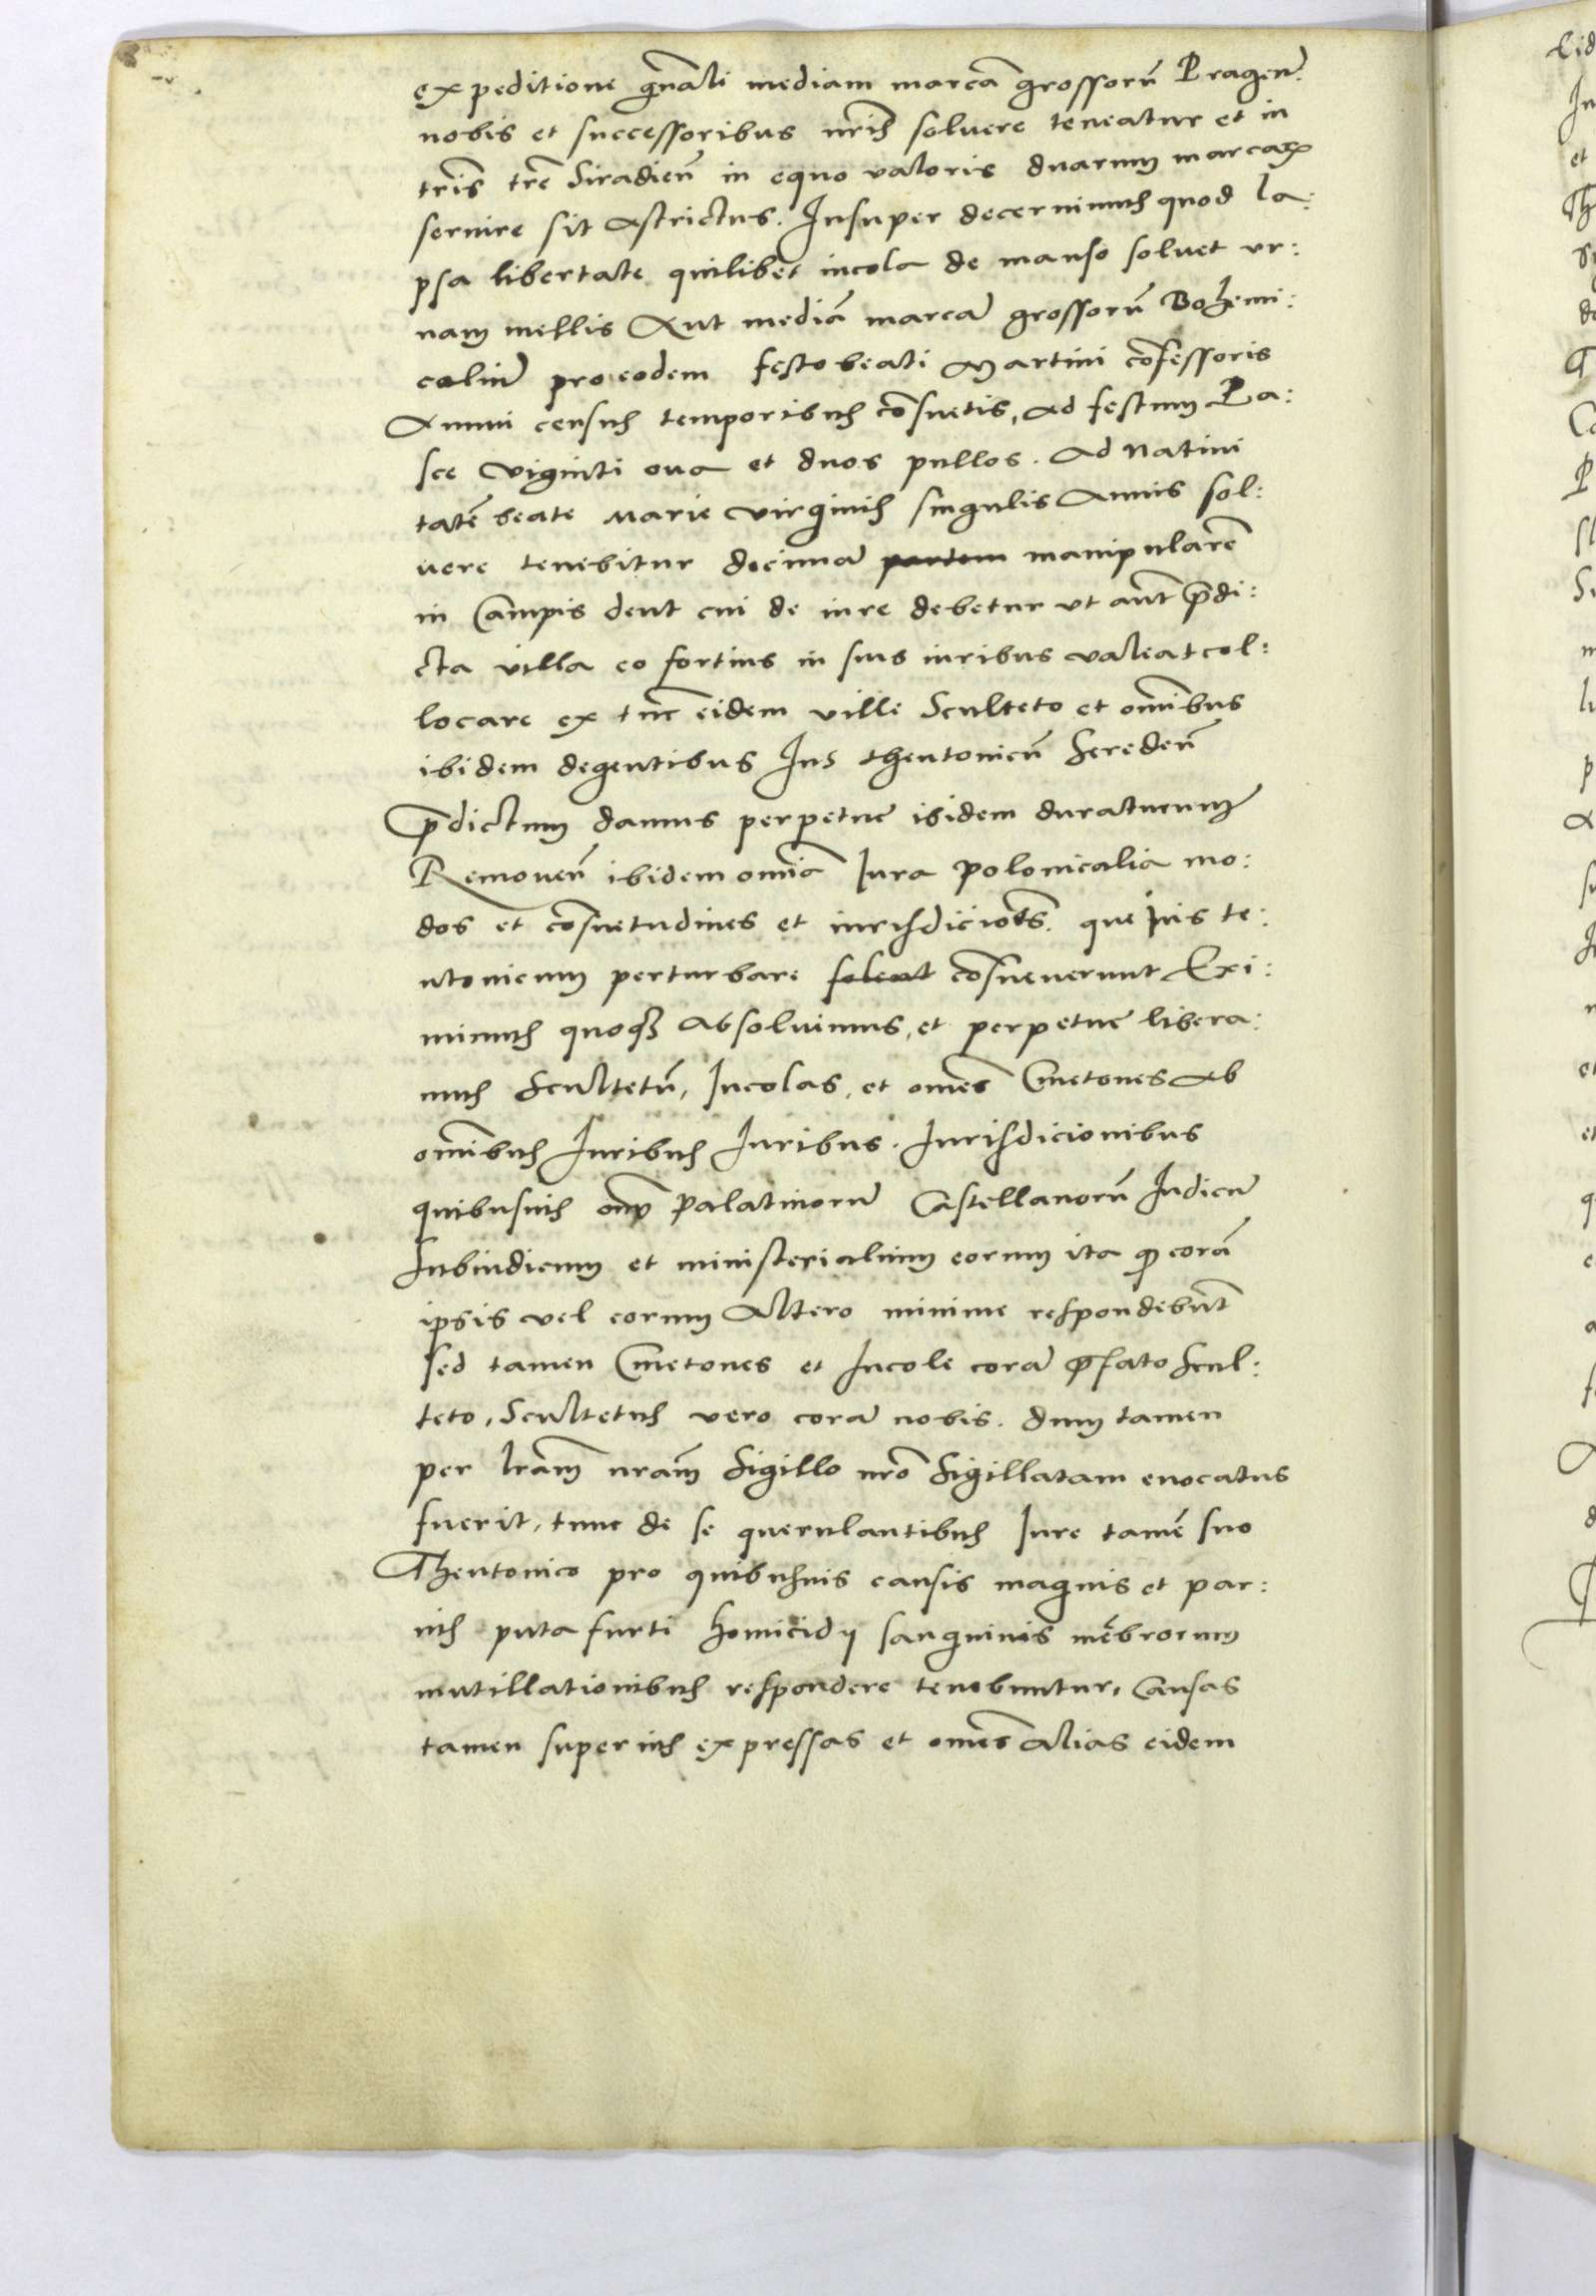 expeditione gnãli mediam marcã grossorũ Pragen̄.
nobis et successoribus nr̃is soluere teneatur et in
tr̃is tr̃e Siradien̄ in equo valoris duarum marcarꝫ
seruire sit astrictus. Insuper decernimus quod la:
psa libertate quilibet incola de manso soluet vr:
nam mellis aut mediã marcã grossorũ Bohemi:
caliũ pro eodem festo beati Martini cõfessoris
Annui census temporibus cõsuetis, ad festum Pa:
sce viginti oua et duos pullos. Ad Natiui
tatẽ beate Marie virginis singulis Annis sol:
uere tenebitur decimã partem manipularẽ
in Campis dent cui de iure debetur vt aut p̃di:
cta villa eo fortius in suis iuribus valeat col:
locare ex tũc eidem ville Sculteto et om̃ibus
ibidem degentibus Ius theutonicũ sreden̄
p̃dictum damus perpetue ibidem duraturum
Remouen̄ ibidem om̃ia Iura polonicalia mo:
dos et cõsuetudines et iurisdiciões. que ius te:
utonicum perturbare solent cõsueuerunt Exi:
mimus quoqꝫ absoluimus, et perpetue libera:
mus Scultetũ, Incolas, et om̃es Cmetones ab
om̃ibus Iuribus Iuribus. Iurisdicionibus
quibusuis om̃ Palatinorũ Castellanorũ Iudicũ
Subiudicum et ministerialium eorum ita ꝙ corã
ipsis vel eorum altero minime respondebũt
sed tamen Cmetones et Incole corã p̃fato Scul:
teto, Scultetus vero corã nobis. dum tamen
per l̃ram nr̃am Sigillo nr̃o Sigillatam euocatus
fuerit, tunc de se querulantibus Iure tamẽ suo
Theutonico pro quibusuis causis magnis et par:
uis puta furti homicidij sanguinis mẽbrorum
mutillationibus respondere tenebuntur, Causas
tamen superius expressas et om̃es alias eidem